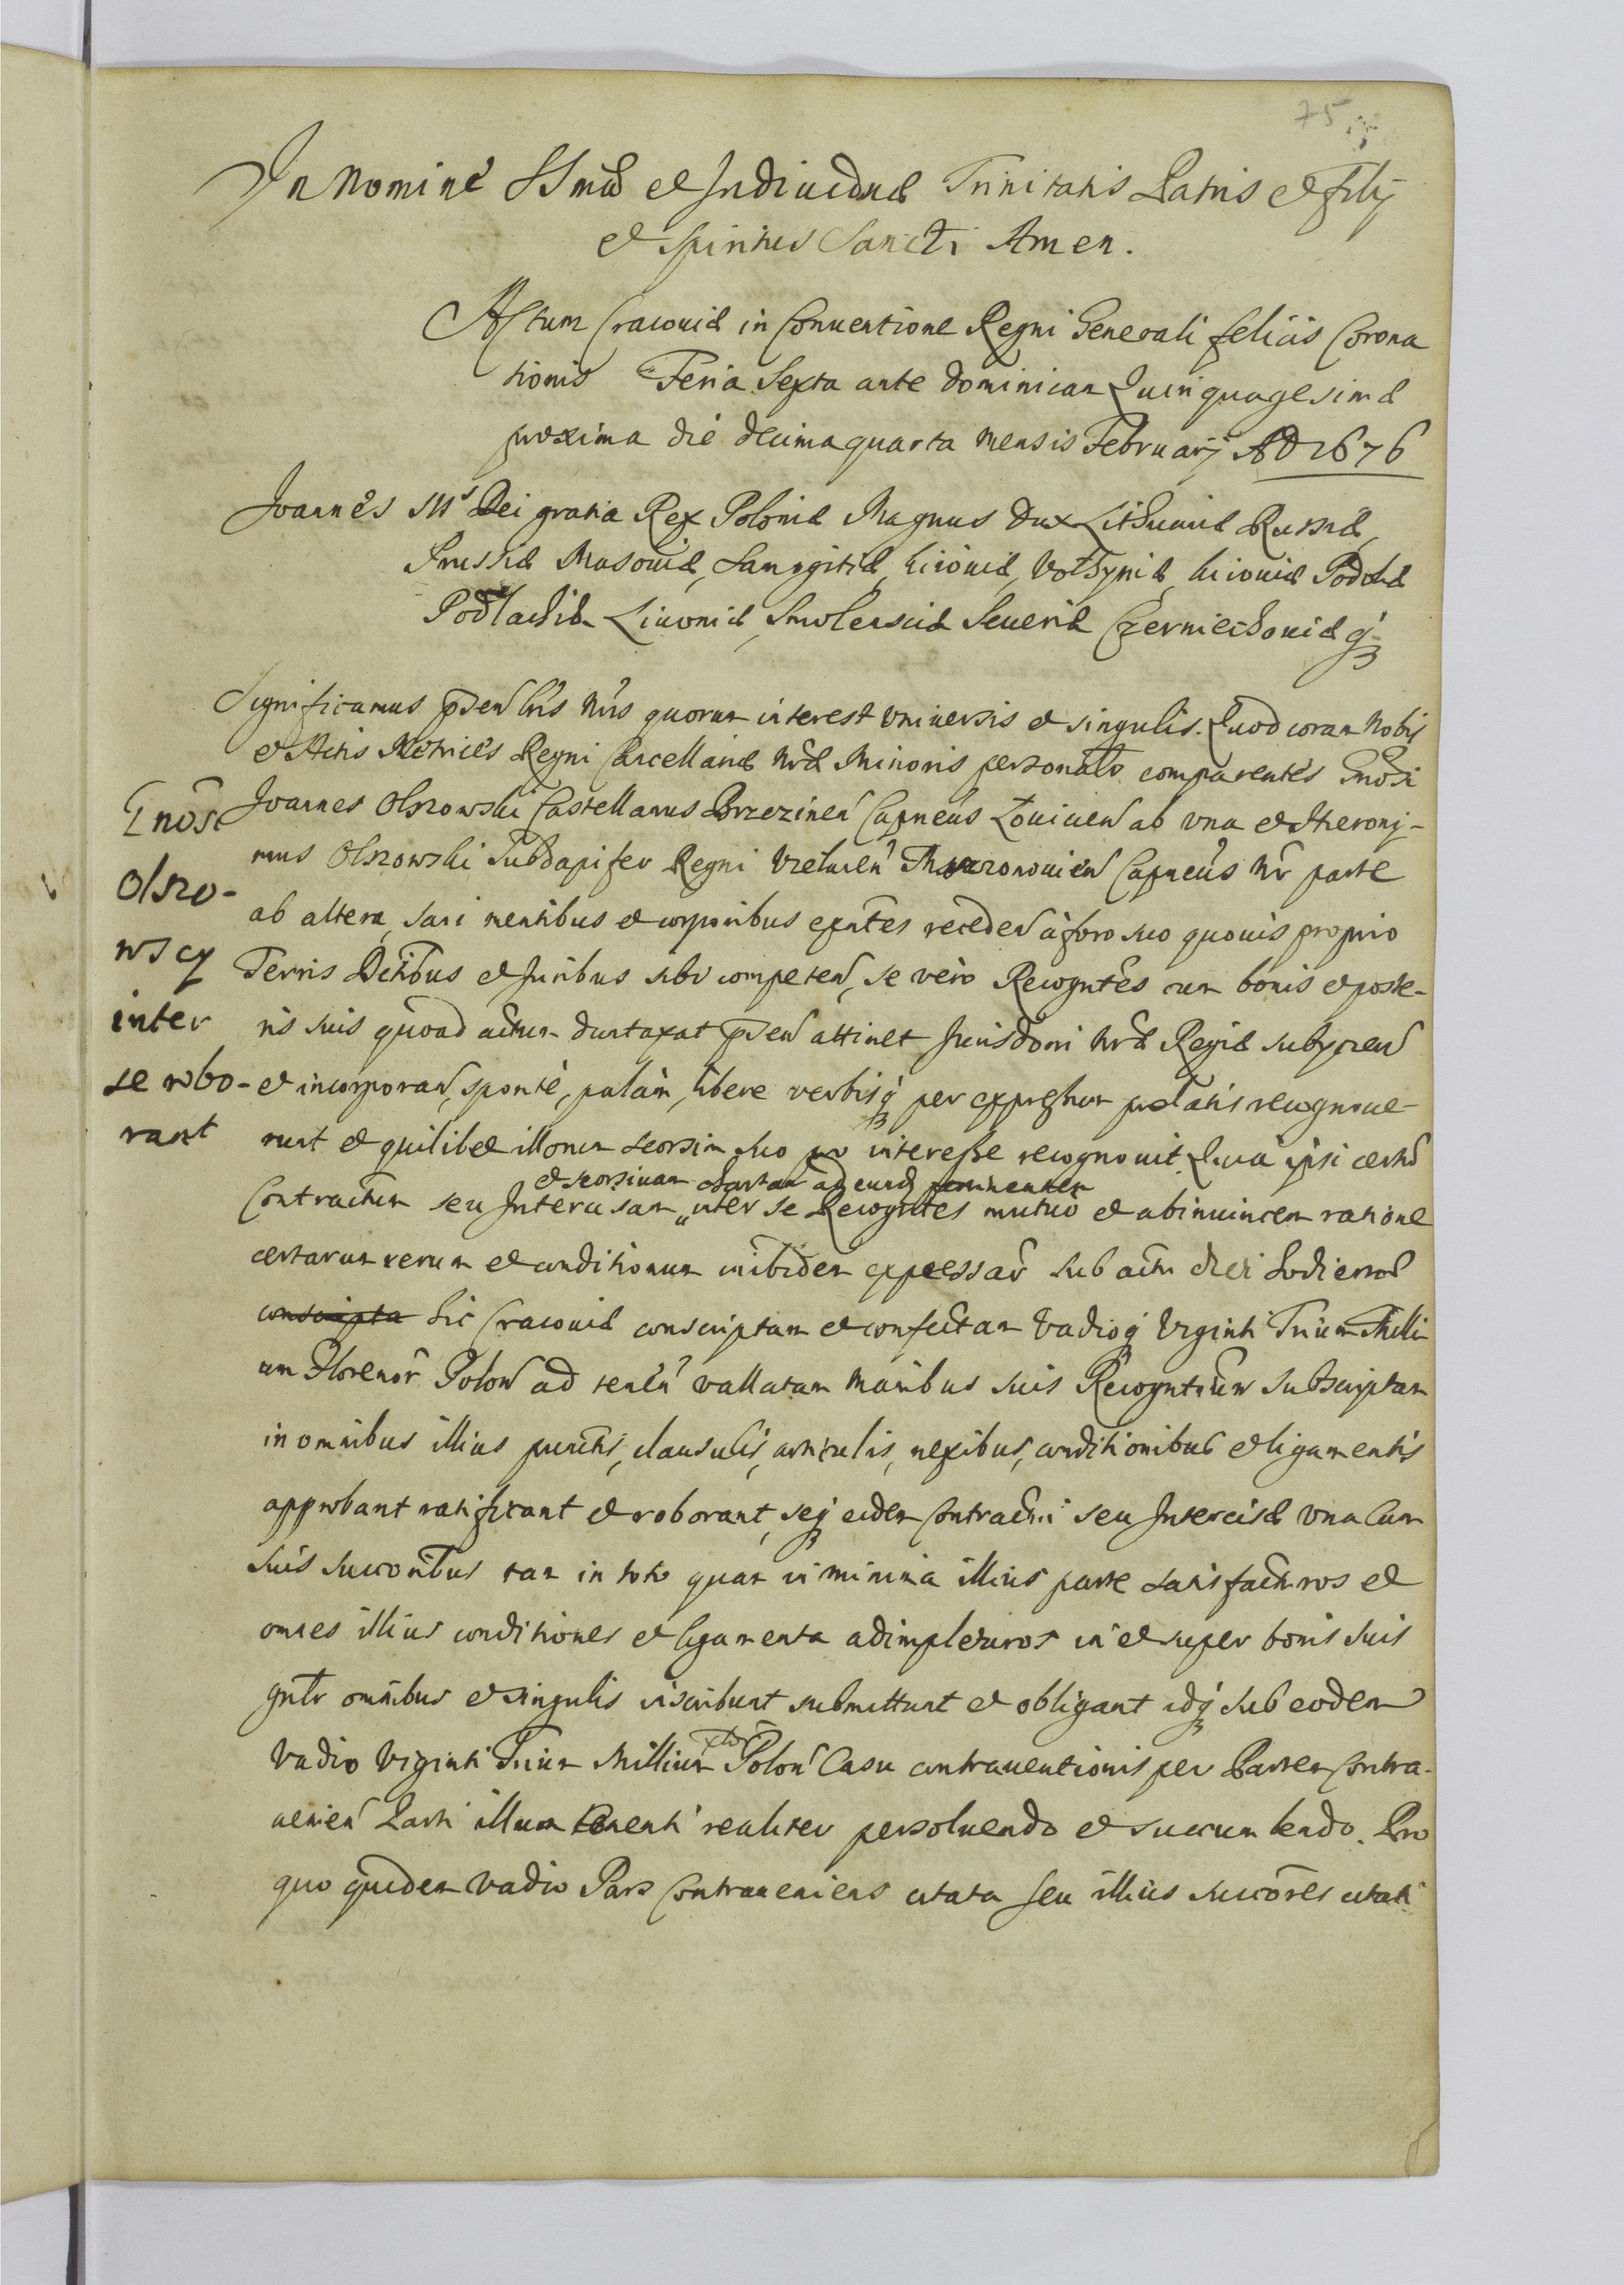 75
In Nomine SSmæ et Indiuiduæ Trinitatis Patris et Filij
et Spiritus Sancti Amen.
Actum Cracouiæ in Conuentione Regni Generali felicis Corona
tionis Feria Sexta ante Dominicam Quinquagesimæ
proxima die decima quarta mensis Februarij AD 1676
Joannes IIIs Dei gratia Rex Poloniæ Magnus Dux Lithuaniæ Russiæ,
Prussiæ Masouiæ, Samogitiæ, Kiiouiæ, Volhyniæ, Kiiouiæ Podoliæ
Podlachiæ Liuoniæ, Smolensciæ Seueriæ Czerniechouiæq̃
Significamus p̃sen̄ Lr̃is Nr̃is quorum interest vniuersis et singulis. Quod coram Nobis
et Actis Metrices Regni Cancellariæ Nr̃æ Minoris personalr̃ comparentes Gnõsi
Joannes Olszowski Castellanus Brzezinen̄ Capneus ab vna et Hierony-
mus Olszowski Subdapifer Regni Vielunen̄ Capneus Nr̃ parte
ab altera, sani mentibus et corporibus exñtes receden̄ à foro suo quouis proprio
Terris Dctibus et Juribus sibi competen̄, se vero Recogñtes cum bonis et poste-
ris suis quoad actum duntaxat p̃sen̄ attinet Jurisdõni Nr̃æ Regiæ subijcien̄
et incorporan̄, sponte, palam, libere verbisq̃ per expressum prolatis recognoue-
runt et quilibet illorum seorsim suo pro interesse recognouit. Quia ipsi certũ
et seorsiuam chartam ad eund̃ pertinentem
Contractum seu Intercisam inter se Recogñtes mutuo et abinuincem ratione
certarum rerum et conditionum inibidem expressar̃ sub actu diei hodiernæ
conscripta hic Cracouiæ conscriptam et confectam Vadioq̃ Viginti Trium Milli
um Florenor̃ Polon̄ ad tenen̄ vallatam manibus suis Recogñtium subscriptam
in omnibus illius punctis, clausulis, articulis, nexibus, conditionibus et ligamentis
approbant ratificant et roborant, seq̃ eidem Contractui seu Intercisæ vna cum
suis succoribus tam in toto quam in minima illius parte satisfacturos et
omnes illius conditiones et ligamenta adimpleturos in et super bonis suis
gñlr̃ omnibus et singulis inscribunt submittunt et obligant idq̃ sub eodem
Vadio Viginti Trium Millium Polon̄ Casu contrauentionis per Partem Contra-
uenien̄ Parti illum tenenti realiter persoluendo et succumbendo. Pro
quo quidem vadio Pars Contraueniens citata seu illius succores citati
Gnõsi
Olszo-
wscy
inter
se robo-
rant